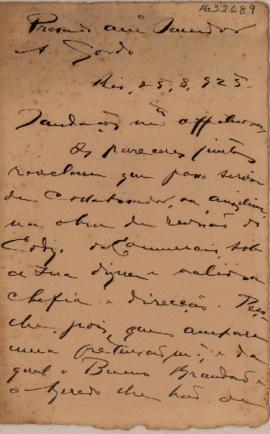 AG.S2.68.9
Presado am.º Senador
A. Gordo
Rio, 25, 8, 925.
Saudações
Os pareceres juntos
revelam que posso servir
de Collaborador, ou auxiliar,
na obra de revisão do
Codigo Commercial, sob
a Sua digna e valiosa
chefia e direcção. Peço
lhe, pois, que ampare
uma pretenção, e da
qual o Bueno Brandão e
o lhe hão de